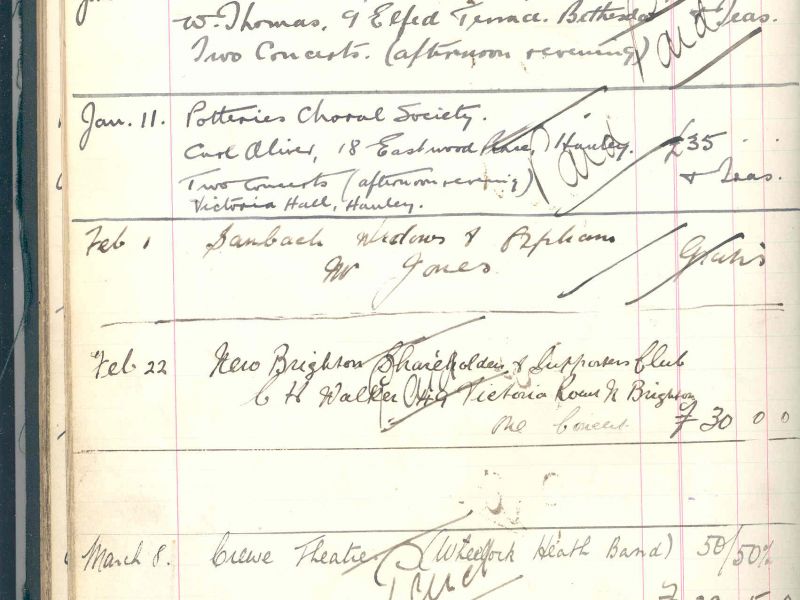 W. Thomas, 9 Elfed Terrace. Bethesda & Teas.
Two Concerts. (afternoon & evening) Paid
Jan. 11. Potteries Choral Society.
Carl Oliver, 18 Eastwood Place, Hanley. £35
Two Concerts (afternoon & evening) Paid & Teas.
Victoria Hall, Hanley.
Feb 1 Sanbach Widows & Orphans
Mr Jones Gratis
Feb 22 New Brighton Shareholders & Supporters Club
C H Walker 49 Victoria Road N Brighton
One Concert £ 30 0 0
March 8. Crewe Theatre (Wheelock Heath Band) 50/50%